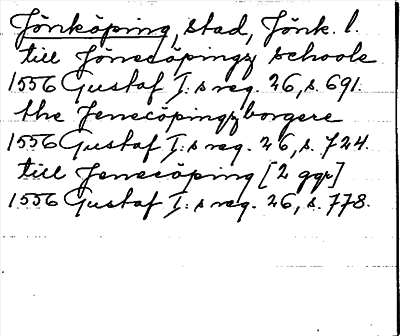 Jönköping, stad, Jönk. l.
till Jönecöpingz schoole
1556 Gustaf I:s reg. 26, s. 691.
the Jenecöpingzborgere
1556 Gustaf I:s reg. 26, s. 724.
till Jenecöping [2 ggr]
1556 Gustaf I:s reg. 26, s. 778.